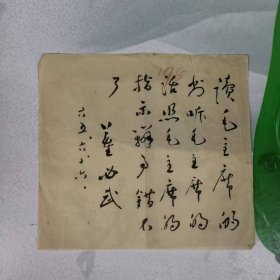 讀毛主席的
书听毛主席的
话照毛主席的
指示辦事錯不
了 董必武
六五、六、十六、